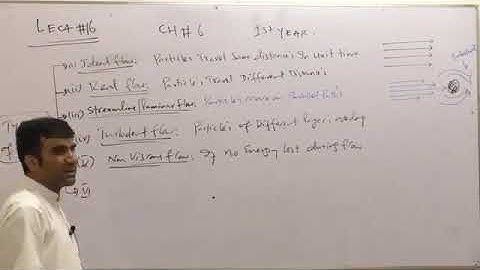 LECT #16 CH # 6 1ST YEAR
(i) Ideal flow: Particles Travel Same distance In Unit time
(ii) Real flow: Particles Travel Different Distances
(iii) Streamline/Laminar flow: Particles Move in Parallel Paths
(iv) Turbulent flow: Particles of Different layers
(v) Non Viscous flow: If no Energy Lost during flow
of
VI